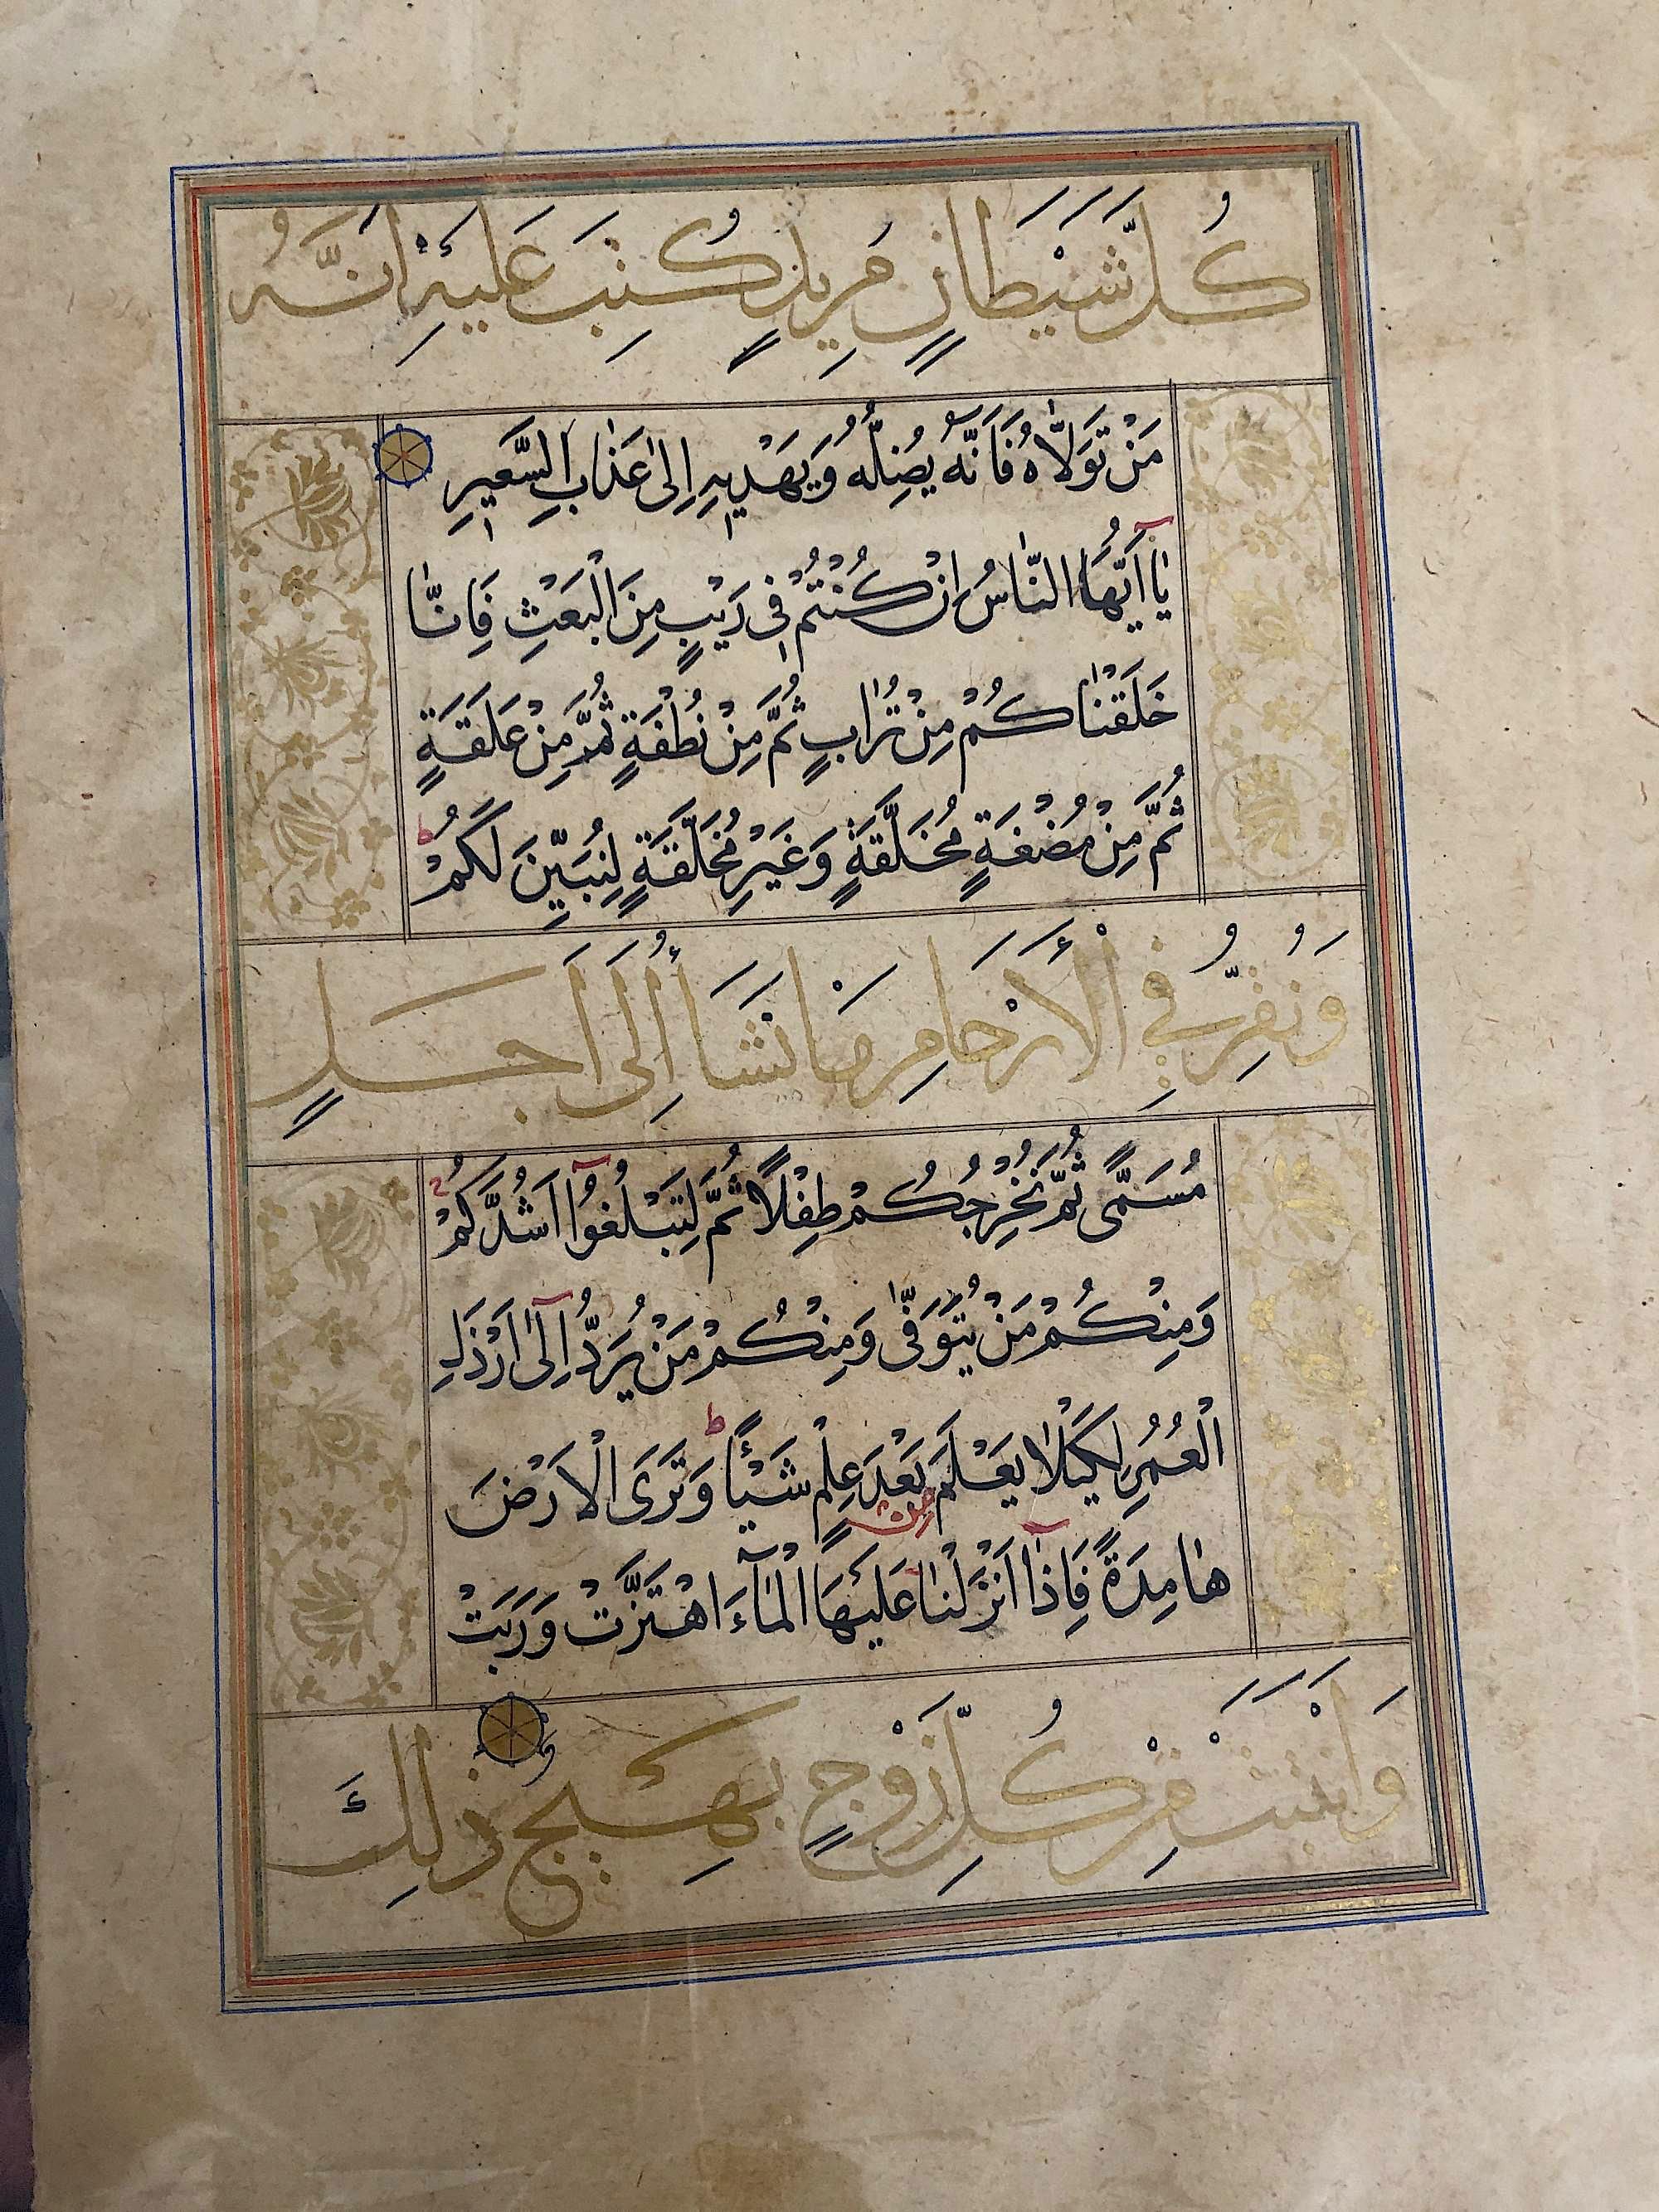 كُلَّ شَيْطَانٍ مَرِيدٍ كُتِبَ عَلَيْهِ اَنَّهُ
مَنْ تَوَلَّاهُ فَاَنَّهُ يُضِلُّهُ وَيَهْدِيهِ اِلىٰ عَذَابِ السَّعِيرِ
يَا اَيُّهَا النَّاسُ اِنْ كُنْتُمْ فِى رَيْبٍ مِنَ الْبَعْثِ فَاِنَّا
خَلَقْنَاكُمْ مِنْ تُرَابٍ ثُمَّ مِنْ نُطْفَةٍ ثُمَّ مِنْ عَلَقَةٍ
ثُمَّ مِنْ مُضْغَةٍ مُخَلَّقَةٍ وَغَيْرِ مُخَلَّقَةٍ لِنُبَيِّنَ لَكُمْ ط
وَنُقِرُّ فِي الْأَرْحَامِ مَا نَشَاءُ اِلَى اَجَلٍ
مُسَمًّى ثُمَّ نُخْرِجُكُمْ طِفْلًا ثُمَّ لِتَبْلُغُوٓا اَشُدَّكُمْ
وَمِنْكُمْ مَنْ يُتَوَفّٰى وَمِنْكُمْ مَنْ يُرَدُّ اِلٰٓى اَرْذَلِ
الْعُمُرِ لِكَيْلَا يَعْلَمَ بَعْدَ عِلْمٍ شَيْئًا ط وَتَرَى الْاَرْضَ
هَامِدَةً فَاِذَآ اَنْزَلْنَا عَلَيْهَا الْمَآءَ اهْتَزَّتْ وَرَبَتْ
وَاَنْبَتَتْ مِنْ كُلِّ زَوْجٍ بَهِيجٍ ذٰلِكَ